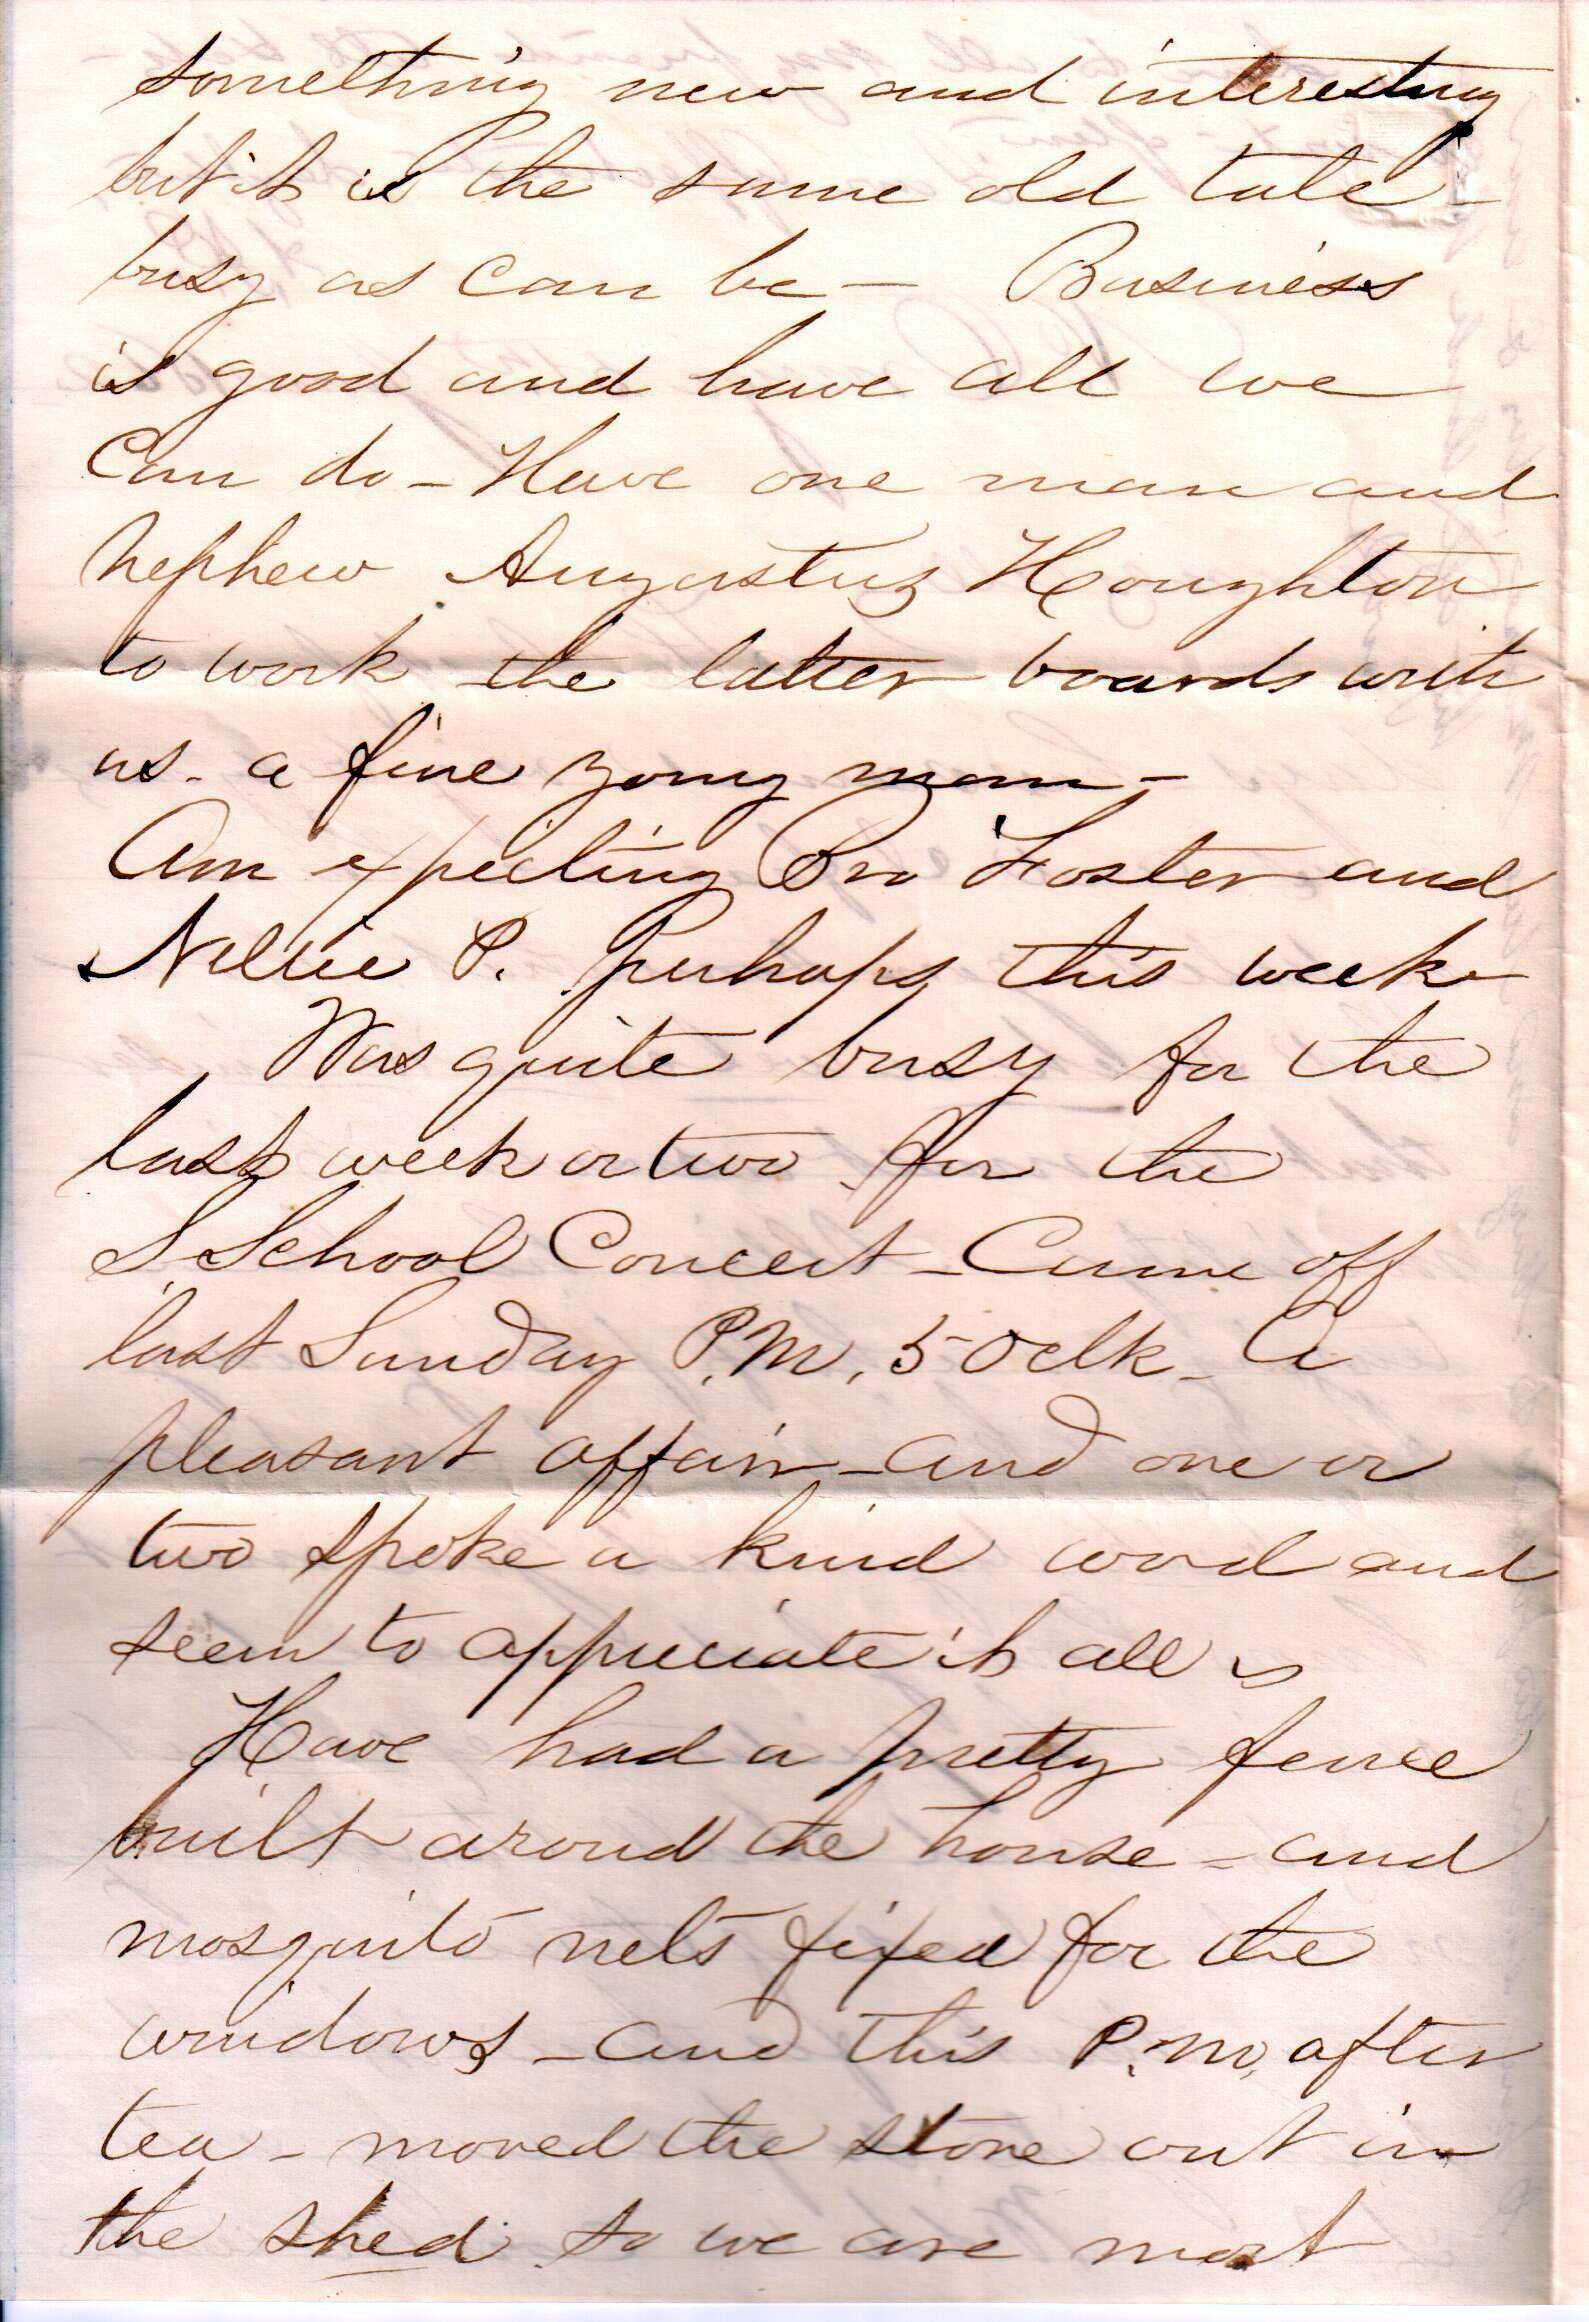 something new and interesting
but it is the same old tale -
busy as can be - Business
is good and have all we
can do - Have one man and
nephew Augustus Houghton
to work the latter boards with
us - a fine young man -
Am expecting Bro Foster and
Nellie P. perhaps this week
Was quite busy for the
last week or two for the
S School Concert - Came off
last Sunday P.M, 5 Oclk - A
pleasant affair - and one or
two spoke a kind word and
seem to appreciate it all
Have had a pretty fence
built around the house - and
mosquito nets fixed for the
windows - and this P.M. after
tea - moved the stove out in
the shed so we are most